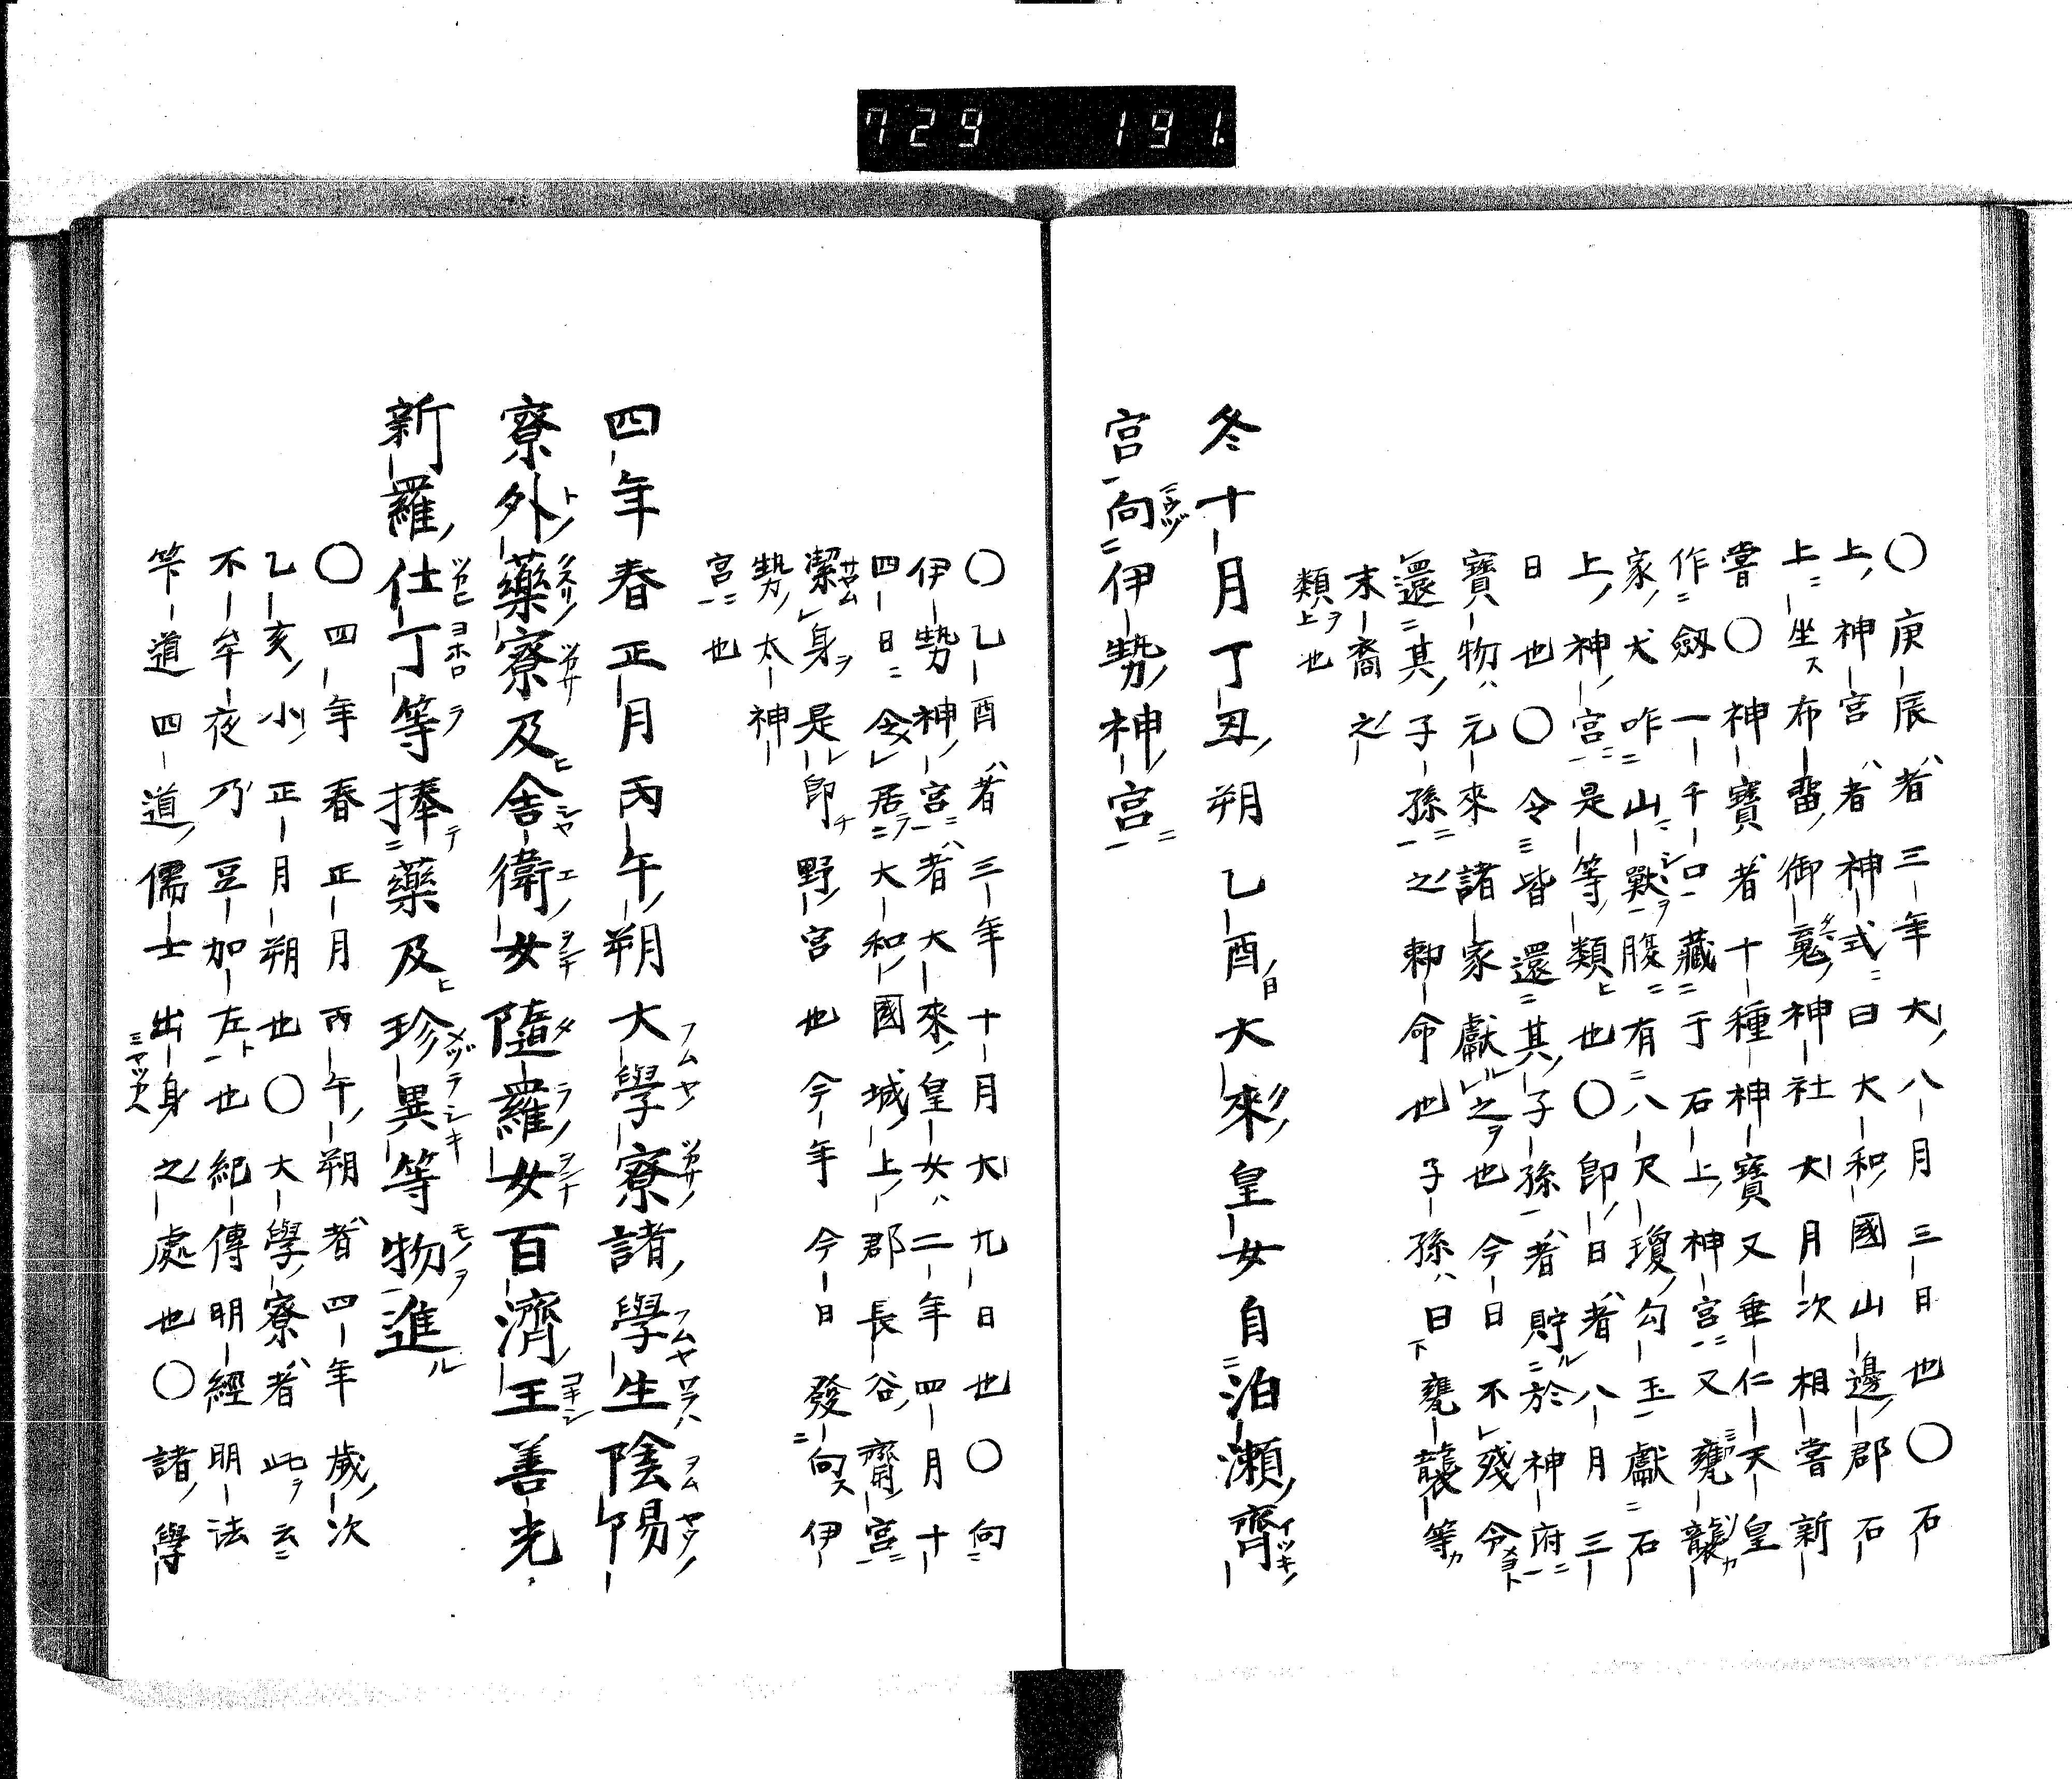 729 191.
〇庚辰者三年大八月三日也〇石
上神宮者神式曰大和國山邊郡石
上坐布留御魂神社大月次相嘗新
嘗〇神寶者十種神寶又垂仁天皇
作劔一千口藏于石上神宮又甕襲
家犬咋山獸腹有八尺瓊勾玉獻石
上神宮是等類也〇即日者八月三
日也〇令皆還其子孫者貯於神府
寶物元來諸家獻之也今日不殘令
還其子孫之勅命也子孫曰甕襲等
末裔之
類也
冬十月丁丑朔乙酉大來皇女自泊瀬齋
宮向伊勢神宮
〇乙酉者三年十月大九日也〇向
伊勢神宮者大來皇女二年四月十
四日令居大和國城上郡長谷齋宮
潔身是即野宮也今年今日發向伊
勢太神
宮也
四年春正月丙午朔大學寮諸學生陰陽
寮外藥寮及舍衛女隨羅女百濟王善光
新羅仕丁等捧藥及珍異等物進
〇四年春正月丙午朔者四年歲次
乙亥小正月朔也〇大學寮者此云
不牟夜乃豆加左也紀傳明經明法
竿道四道儒士出身之處也〇諸學